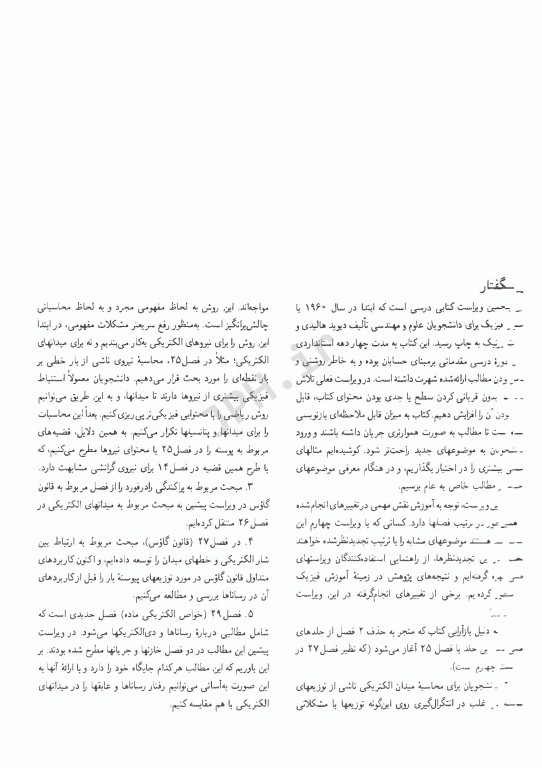 گفتار
ویراست کتابی درسی است که ابتدا در سال ۱۹۶۰ با
فیزیک برای دانشجویان علوم و مهندسی تألیف دیوید هالیدی و
به چاپ رسید. این کتاب به مدت چهار دهه استانداردی
درسی مقدماتی برمبنای حسابان بوده و به خاطر روشنی و
بودن مطالب ارائه‌شده شهرت داشته است. در ویراست فعلی تلاش
بدون قربانی کردن سطح یا جدی بودن محتوای کتاب، قابل
را افزایش دهیم. کتاب به میزان قابل ملاحظه‌ای بازنویسی
تا مطالب به صورت هموارتری جریان داشته باشند و ورود
به موضوعهای جدید راحت‌تر شود. کوشیده‌ایم مثالهای
بیشتری را در اختیار بگذاریم، و در هنگام معرفی موضوعهای
مطالب خاص به عام برسیم.
توجه به آموزش نقش مهمی در تغییرهای انجام‌شده
ترتیب فصلها دارد. کسانی که با ویراست چهارم این
هستند موضوعهای مشابه را با ترتیب تجدیدنظرشده خواهند
تجدیدنظرها، از راهنمایی استفاده‌کنندگان ویراستهای
گرفته‌ایم و نتیجه‌های پژوهش در زمینهٔ آموزش فیزیک
برخی از تغییرهای انجام‌گرفته در این ویراست
دلیل بازآرایی کتاب که منجر به حذف ۲ فصل از جلدهای
جلد با فصل ۲۵ آغاز می‌شود (که نظیر فصل ۲۷ در
چهارم است).
برای محاسبهٔ میدان الکتریکی ناشی از توزیعهای
در انتگرال‌گیری روی این‌گونه توزیعها با مشکلاتی
مواجه‌اند. این روش به لحاظ مفهومی مجرد و به لحاظ محاسباتی
چالش‌برانگیز است. به‌منظور رفع سریعتر مشکلات مفهومی، در ابتدا
این روش را برای نیروهای الکتریکی به‌کار می‌بندیم و نه برای میدانهای
الکتریکی؛ مثلاً در فصل ۲۵، محاسبهٔ نیروی ناشی از بار خطی بر
بار نقطه‌ای را مورد بحث قرار می‌دهیم. دانشجویان معمولاً استنباط
فیزیکی بیشتری از نیروها دارند تا میدانها، و به این طریق می‌توانیم
روش ریاضی را با محتوایی فیزیکی‌تر پی‌ریزی کنیم. بعداً این محاسبات
را برای میدانها و پتانسیلها تکرار می‌کنیم. به همین دلایل، قضیه‌های
مربوط به پوسته را در فصل ۲۵ با محتوای نیروها مطرح می‌کنیم، که
با طرح همین قضیه در فصل ۱۴ برای نیروی گرانشی مشابهت دارد.
۳. مبحث مربوط به پراکندگی رادرفورد را از فصل مربوط به قانون
گاؤس در ویراست پیشین به مبحث مربوط به میدانهای الکتریکی در
فصل ۲۶ منتقل کرده‌ایم.
۴. در فصل ۲۷ (قانون گاؤس)، مبحث مربوط به ارتباط بین
شار الکتریکی و خطهای میدان را توسعه داده‌ایم، و اکنون کاربردهای
متداول قانون گاؤس در مورد توزیعهای پیوستهٔ بار را قبل از کاربردهای
آن در رساناها بررسی و مطالعه می‌کنیم.
۵. فصل ۲۹ (خواص الکتریکی ماده) فصل جدیدی است که
شامل مطالبی دربارهٔ رساناها و دی‌الکتریکها می‌شود. در ویراست
پیشین این مطالب در دو فصل خازنها و جریانها مطرح شده بودند. بر
این باوریم که این مطالب هرکدام جایگاه خود را دارد و با ارائهٔ آنها به
این صورت به‌آسانی می‌توانیم رفتار رساناها و عایقها را در میدانهای
الکتریکی با هم مقایسه کنیم.